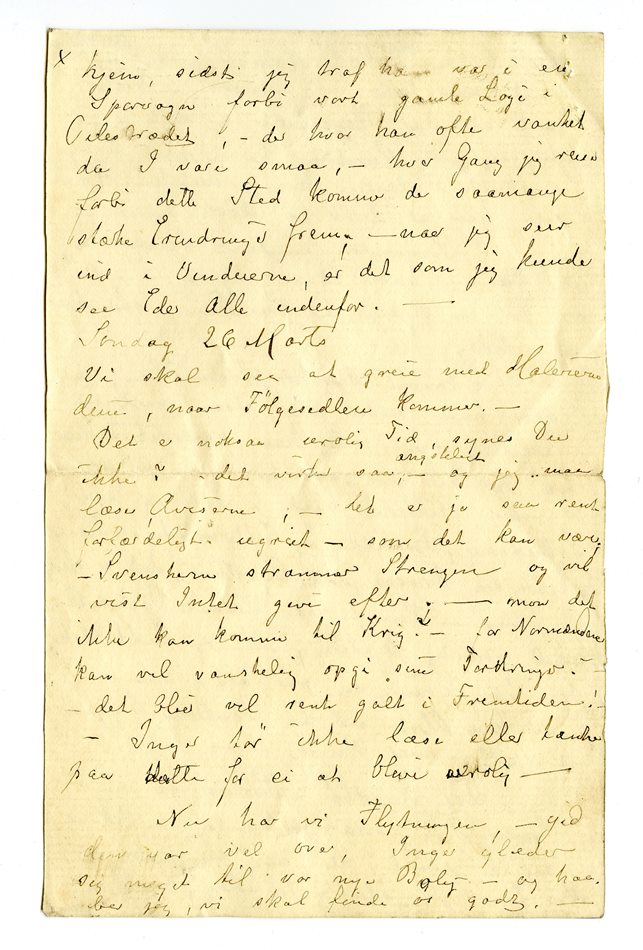 x
hjem, sidst jeg traf ham var i en
Sporvogn forbi vort gamle Logi i
Pilestrædet, - der hvor han ofte vanket
da I vare smaa, - hver Gang jeg reiser
forbi dette Sted komme de saamange
stærke Erindringer frem, - naar jeg seer
ind i Vinduerne, er det som jeg kunde
see Eder Alle indenfor. -
Søndag 26 Marts
Vi skal see at greie med Malerierne
dem, naar Følgesedlen kommer. -
Det er noksaa urolig Tid, synes Du
ikke? - det virker saa ængsteligt, - og jeg maa
læse Aviserne, - det er jo saa rent
forfærdeligt ugreit - som det kan være,
- Svenskerne strammer Strengen og vil
vist Intet give efter; - mon det
ikke kan komme til Krig? - for Normændene
kan vel vanskelig opgi sine Fordringer. -
- det bliver vel rent galt i Fremtiden! -
- Inger tør ikke læse eller tænke
paa dette for ei at blive urolig -
Nu har vi Flytningen, - gid
den var vel over, Inger glæder
sig meget til vor nye Bolig - og haa-
ber jeg, vi skal finde os godt. -